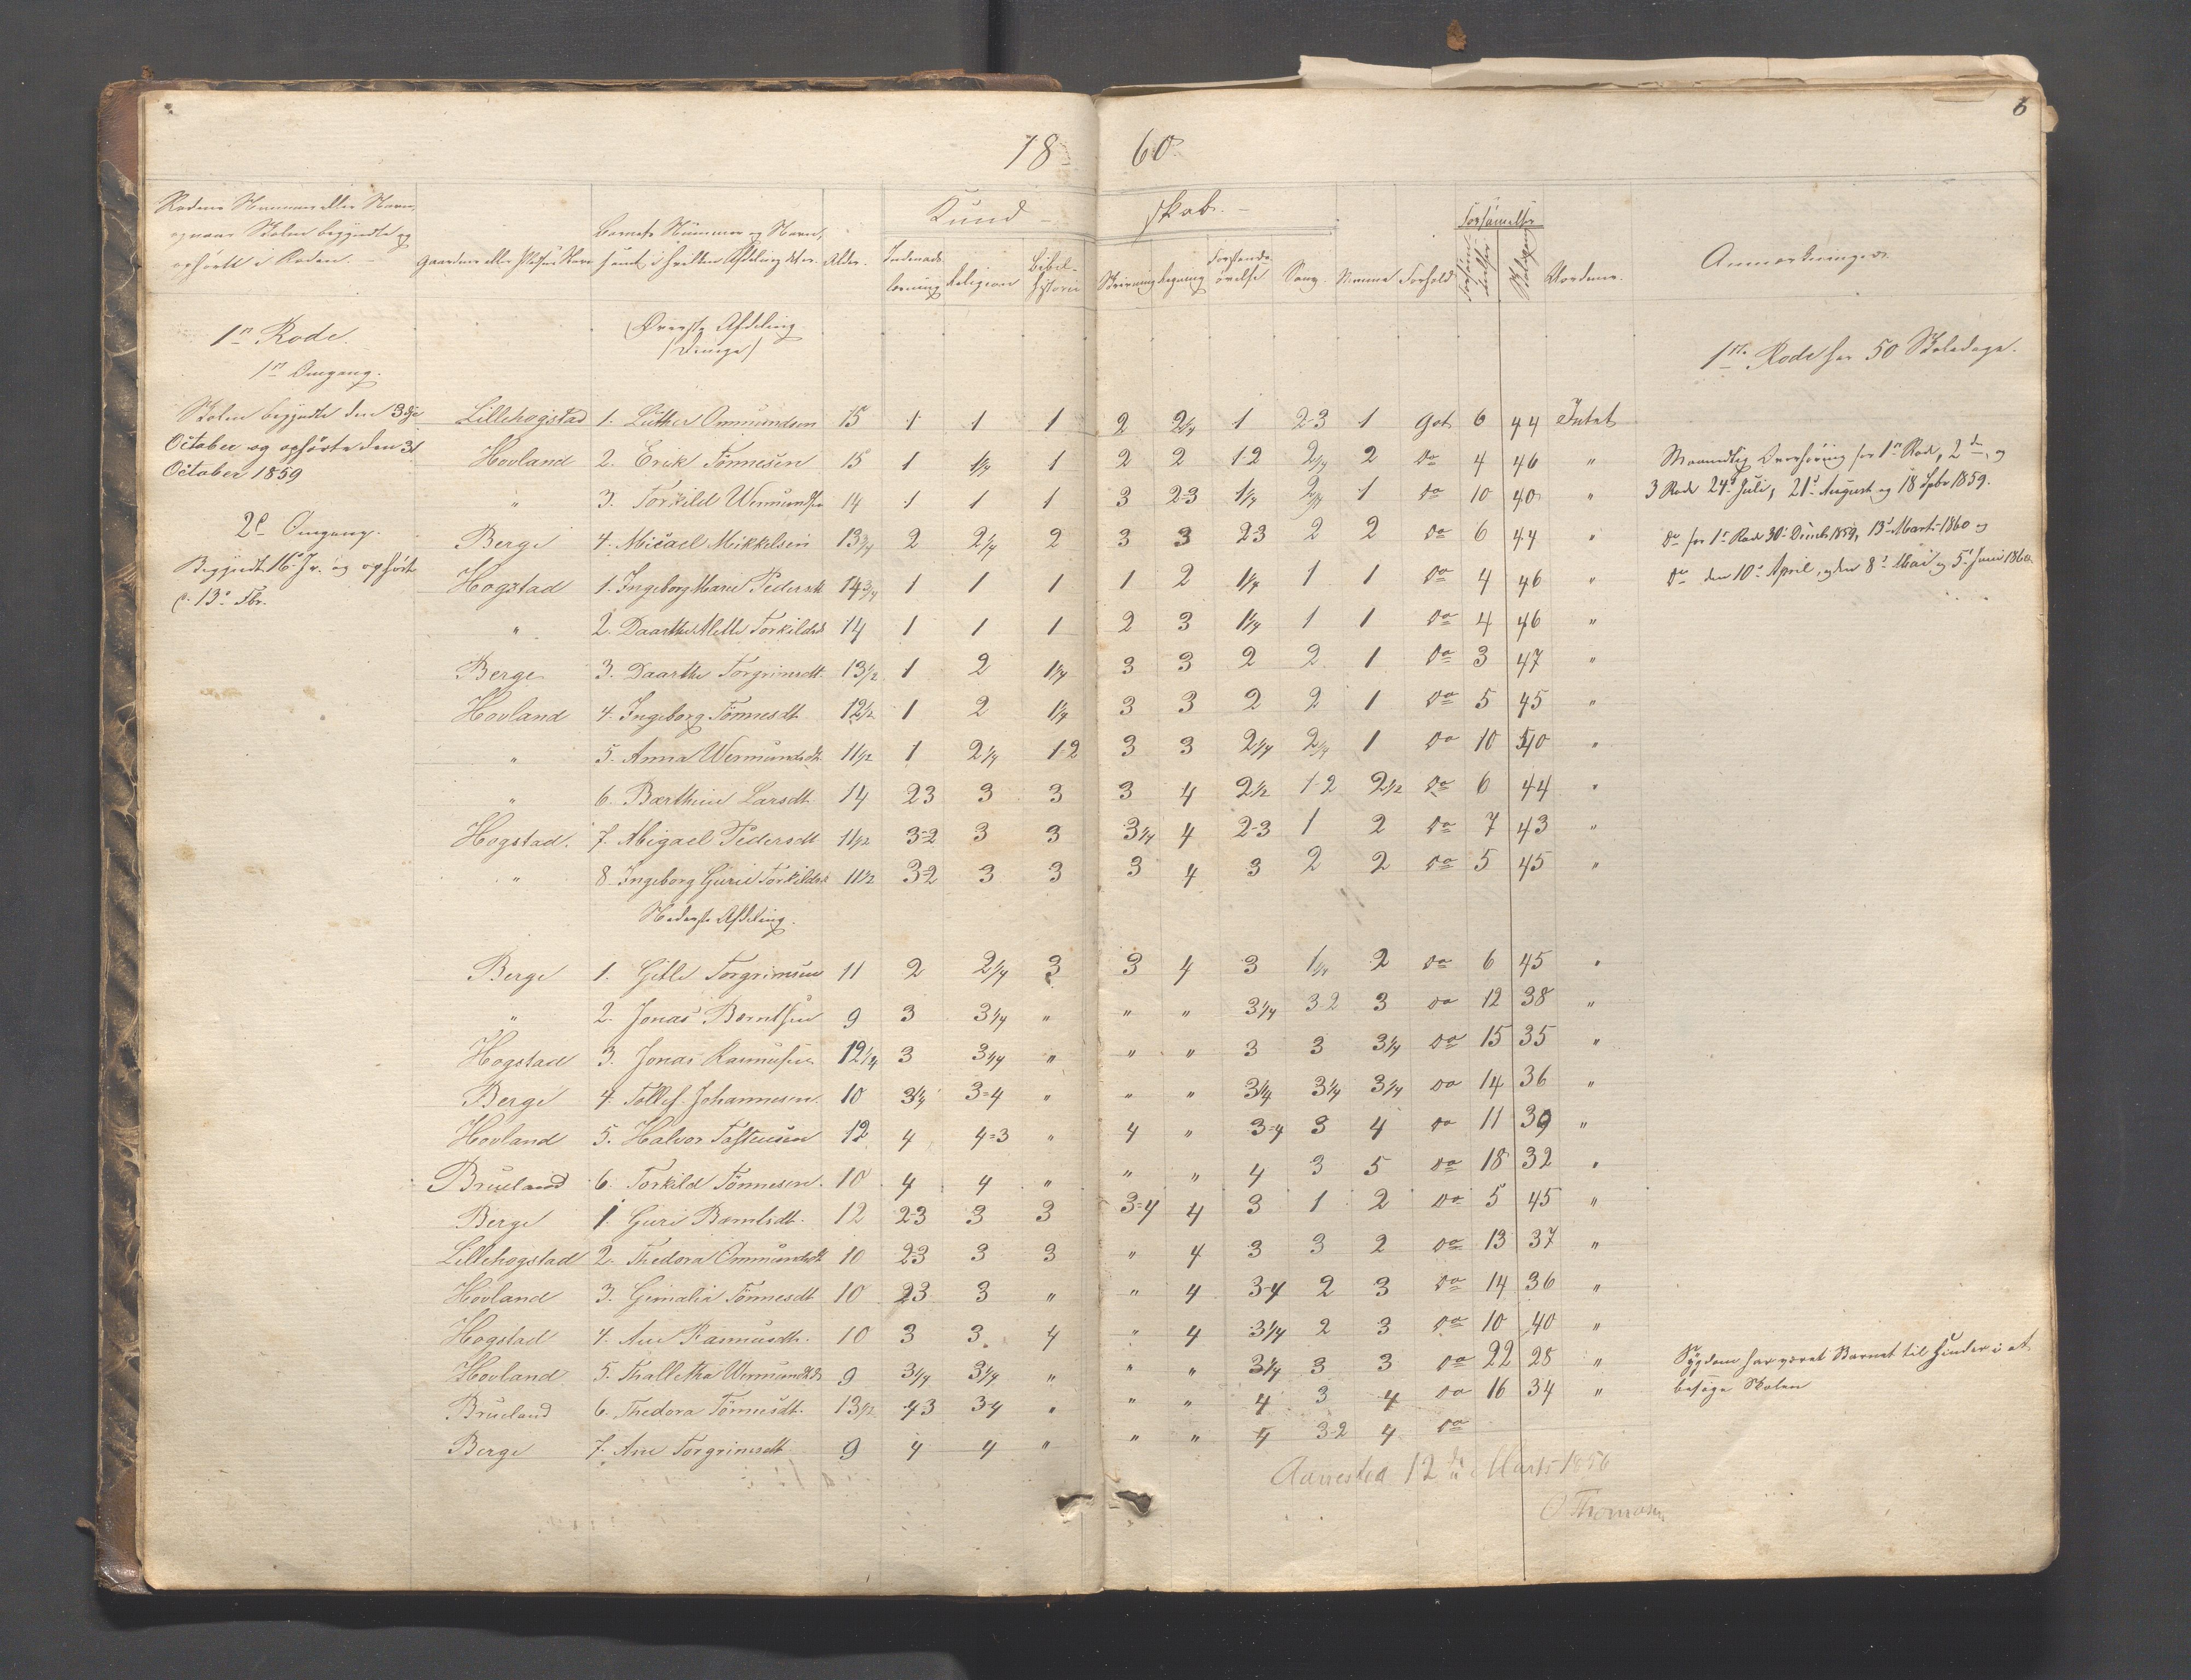 6
18 60
Rodens Nummer eller Navn,
og naar Skolen begyndte og
ophörte i Roden.
Gaardens eller Pladsens Navn
Barnets Nummer og Navn,
samt i hvilken Afdeling det er.
Alder.
Kund skab.
Indenads læsning
Religion
Bibel-historie
Skrivning
Regning
Forstands-övelse
Sang.
Forhold
Forsömmelse
Anmærkninger.
1ste Rode.
Överste Afdeling
/Drenge/
1ste Rode har 50 Skoledage.
1ste Omgang.
Skolen begyndte den 3die
October og ophörte den 31
October 1859
2den Omgang.
Begyndt 16de Jr. og ophört
d. 13de Fbr.
Lillehogstad 1. Luther Ommundsen 15 1 1 1 2 2¼ 1 2-3 1 Godt 6 44 Intet
Hovland 2. Erik Tönnesen 15 1 1¼ 1 2 2 1 2 2¼ 2 do 4 46 "
" 3. Torkild Wermundsen 14 1 1 1 3 2-3 1¼ 2¼ 1 do 10 40 "
Berge 4. Micael Mikkelsen 13¾ 2 2¼ 2 3 3 2 3 2 2 do 6 44 "
Hogstad 1. Ingeborg Marie Pedersdt 14¾ 1 1 1 1 2 1¼ 1 1 do 4 46 "
" 2. Daarthe Alette Torkildsdt 14 1 1 1 2 3 1¼ 1 1 do 4 46 "
Berge 3. Daarthe Torgrimsdt. 13½ 1 2 1¼ 3 3 2 2 1 do 3 47 "
Hovland 4. Ingeborg Tönnesdt. 12½ 1 2 1¼ 3 3 2 2 1 do 5 45 "
" 5. Anna Wermundsdt. 11½ 1 2¼ 1-2 3 3 2¼ 2¼ 1 do 10 40 "
" 6. Barthine Larsdt. 14 2 3 3 3 3 4 2½ 1-2 2½ do 6 44 "
Hogstad. 7. Abigael Pedersdt 11½ 3-2 3 3 3¼ 4 2-3 1 2 do 7 43 "
" 8. Ingeborg Gurie Torkildsdt 11½ 3-2 3 3 3 4 3 2 2 do 5 45 "
Nederste Afdeling.
Berge 1. Gitle Torgrimsen 11 2 2¼ 3 3 4 3 1¼ 2 do 6 45 "
" 2. Jonas Berntsen 9 3 3¼ " " " 3¼ 3-2 3 do 12 38 "
Hogstad 3. Jonas Rasmusen 12¼ 3 3¼ " " " 3 3 3¼ do 15 35 "
Berge 4. Tollef Johannesen. 10 3¼ 3-4 " " " 3¼ 3¼ 3¼ do 14 36 "
Hovland 5. Halvor Tostensen 12 4 4-3 " 4 " 3-4 3 4 do 11 39 "
Brueland 6. Torkild Tönnesen. 10 4 4 " " " 4 3 5 do 18 32 "
Berge 1. Guri Berntsdt. 12 2-3 3 3 3-4 4 3 1 2 do 5 45 "
Lillehogstad 2. Thedora Ommundsdt 10 2-3 3 3 " 4 3 3 2 do 13 37 "
Hovland 3. Gimalia Tönnesdt 10 2-3 3 " " 4 3-4 2 3 do 14 36 "
Hogstad 4. Ane Rasmusdt. 10 3 3 4 " 4 3¼ 2 3 do 10 40 "
Hovland 5. Thalletha Wermundsdt 9 3¼ 3¼ " " " 3¼ 3 3 do 22 28 "
Brueland 6. Thedora Tönnesdt. 13½ 4 3 3-4 " " " 4 3 4 do 16 34 "
Berge 7. Ane Torgrimsdt 9 4 4 " " " 4 3-2 4 do
Maanedlig Overhöring for 1ste Rode, 2den og
3 Rode 24de Juli, 21de August og 18 Spbr 1859.
do for 1ste Rode 30te Decmb 1859, 13de Marts 1860 og
do den 10de April, og den 8de Mai og 5te Juni 1860.
Sygdom har været Barnet til Hinder i at
besöge Skolen
Aarrestad 12te Marts 1856
O Thomasen